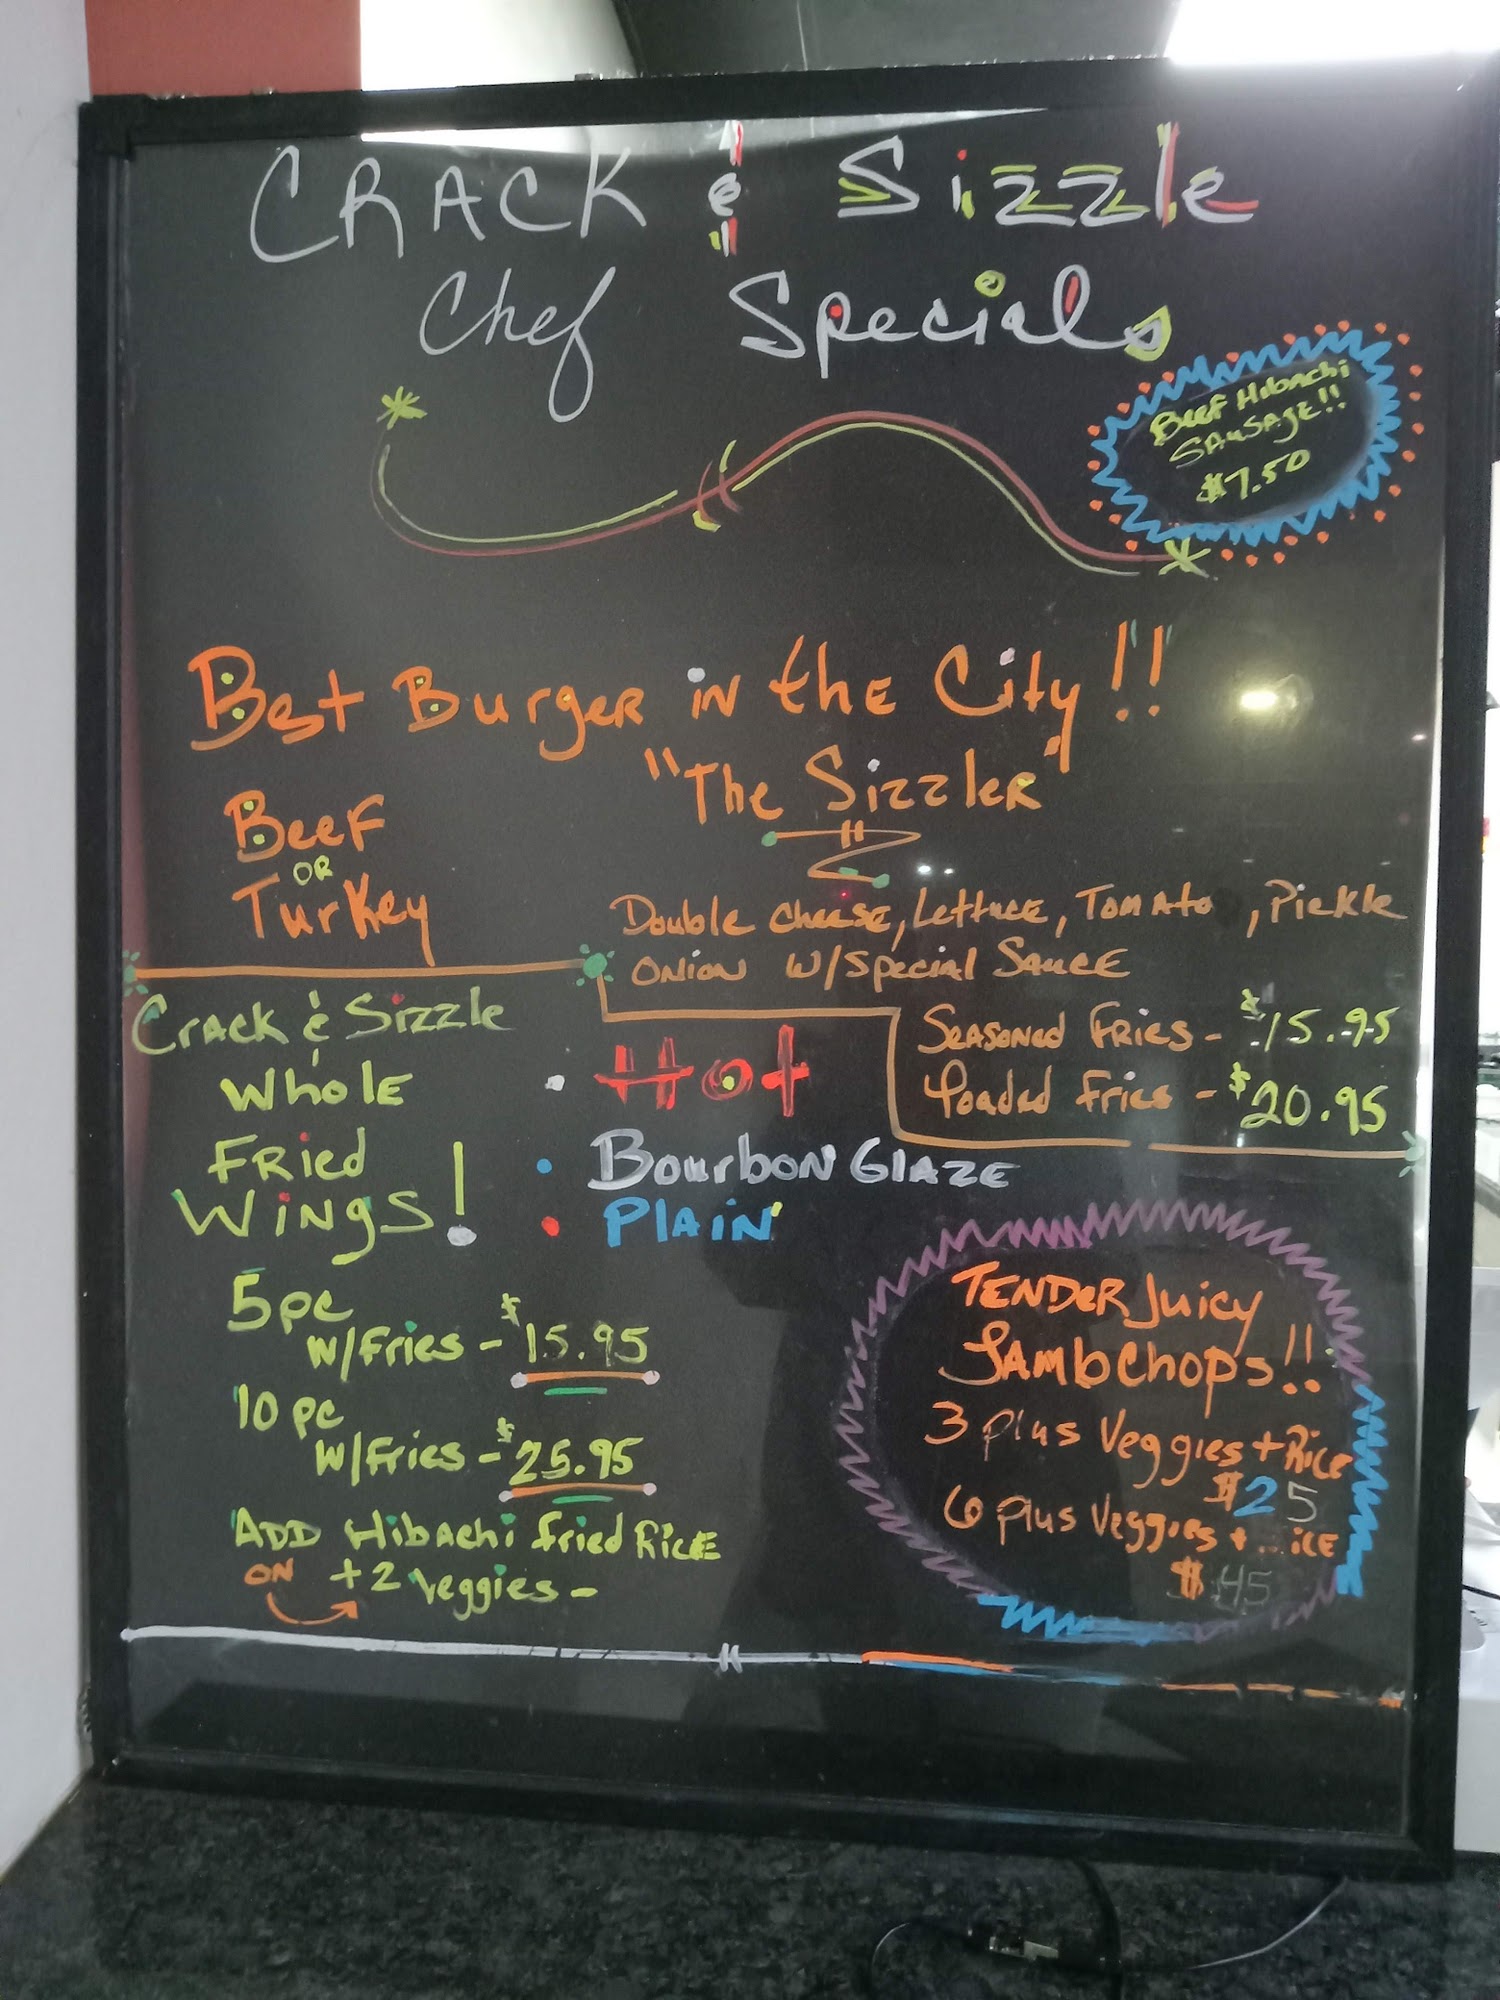 CRACK & Sizzle
Chef Specials
Beef Hibachi
Sausage!!
$7.50
Best Burger in the City!!
"The Sizzler"
Beef
OR
Turkey
Double Cheese, Lettuce, Tomato, Pickle
Onion w/Special Sauce
Seasoned Fries - $15.95
Loaded Fries - $20.95
Crack & Sizzle
Whole
Fried
Wings!
• Hot
• Bourbon Glaze
• Plain
5 pc
w/Fries - $15.95
10 pc
w/Fries - $25.95
ADD Hibachi Fried Rice
ON + 2 Veggies -
TENDER Juicy
Lambchops!!
3 plus Veggies + Rice
$25
6 plus Veggies +
$45